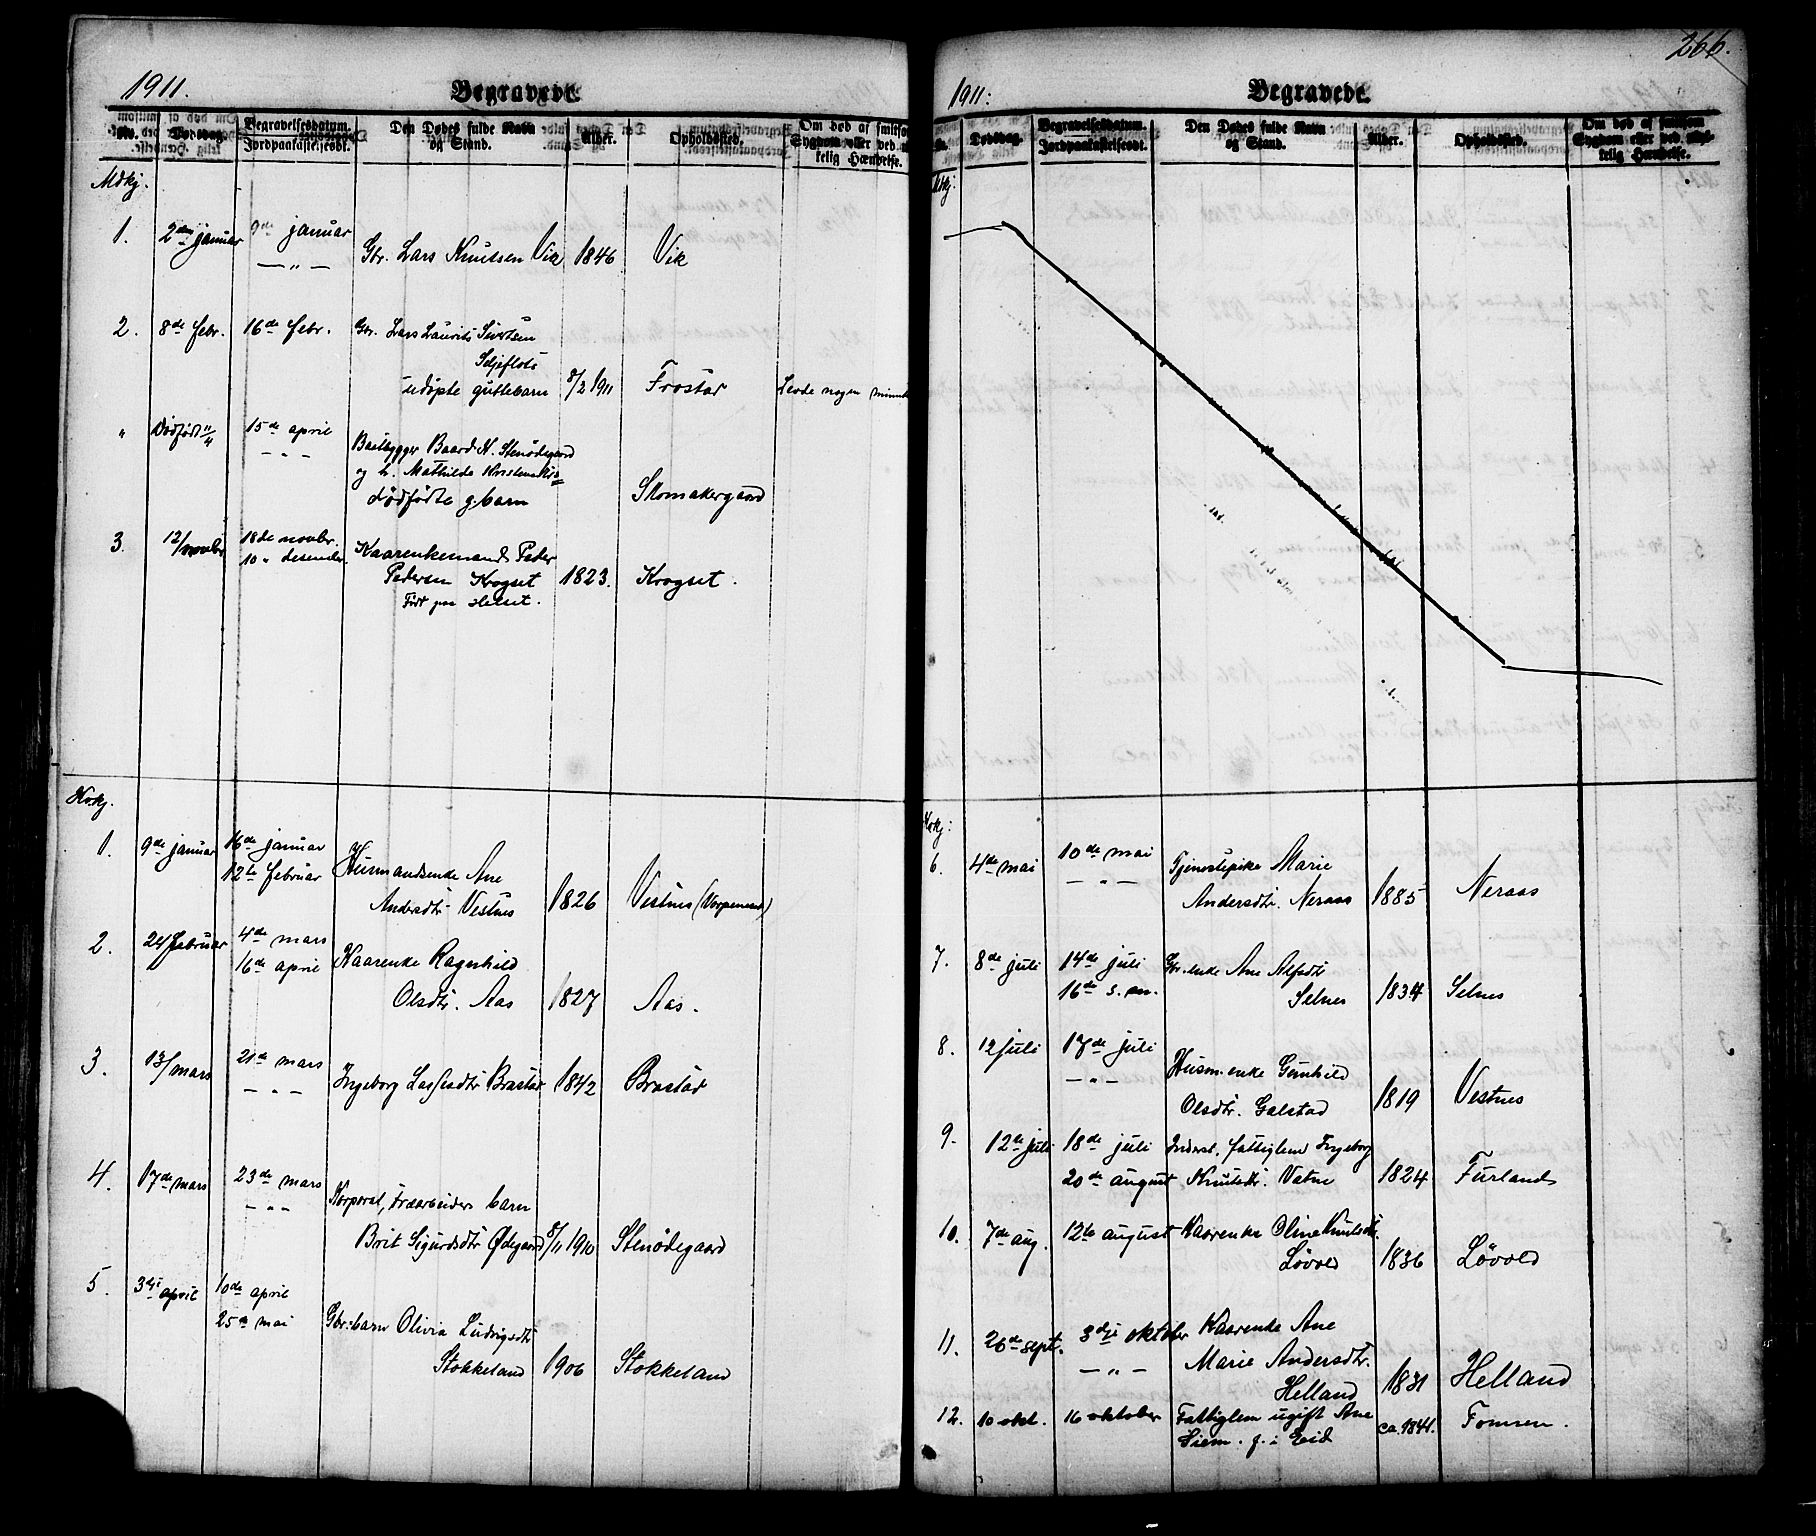 1911.
Begravede.
No.
Dødsdag.
Begravelsesdatum.
Jordpaakastelsesdt.
Den Dødes fulde Navn
og Stand.
Alder.
Opholdssted.
Om død af smitsom
Sygdom eller ved
kelig Hændelse.
Mdkj.
1. 2den januar 9de januar
— " — Gbr. Lars Knutsen Vik 1846 Vik
2. 8de febr. 16de febr. Gbr. Lars Laurits Sivertsen
Seljeflots
udøpte guttebarn 8/2 1911 Frostad Levde nogen minut
" Dødfødt 11/4 15de april
- " - Baard K. Stenødegaard
og h. Mathilde
dødfødte g.barn Skomakergaard
3. 12/novbr 18de novbr.
10 " desember. Kaarenkemand Peder
Pedersen Krogset 1823. Krogset.
Født paa Helset.
Hvkj.
1. 9de januar 16de januar
12te februar Husmandsenke Ane
Andersdtr Vestnes 1826 Vestnes
2. 24 februar 4de mars
16de april Kaarenke Ragnhild
Olsdtr. Aas 1827 Aas.
3. 13/mars 21de mars
— " — Ingeborg Lassesdtr Brastad 1842 Brastad
4. 17de mars 23de mars
- " - Korporal, træarbeiders barn
Brit Sigurdsdtr Ødegaard 8/11 1910 Stenødegaard
5. 3dje april 10de april
25de mai Gbr.barn Olivia Ludvigsdtr
Stokkeland 1906 Stokkeland
266.
1911:
Begravede.
No.
Dødsdag.
Begravelsesdatum.
Jordpaakastelsesdt.
Den Dødes fulde Navn
og Stand.
Alder.
Opholdssted.
Om død af smitsom
Sygdom eller ved
kelig Hændelse.
Mdkj:
Hvkj:
6. 4de mai 10de mai
— " — Tjenestepike Marie
Andersdtr. Neraas 1885 Neraas
7. 8de juli 14de juli
16de s. m. Gbr.enke Ane Alfsdtr
Selnes 1834 Selnes
8. 12 juli 17de juli
— " — Husm.enke Gunhild
Olsdtr. Galstad 1819 Vestnes
9. 12te juli 18de juli
20de august Inderst, fattiglem Ingeborg
Knutsdtr. Vatne 1824 Furland
10. 7de aug. 12te august Kaarenke Oline Knutsdtr.
Løvold 1836 Løvold
11. 26de sept. 3dje oktober
— " — Kaarenke Ane
Marie Andersdtr.
Helland 1831 Helland
12. 10 okt. 16 oktober Fattiglem ugift Ane
Siem. f. i Eid ca. 1841. Tomren.